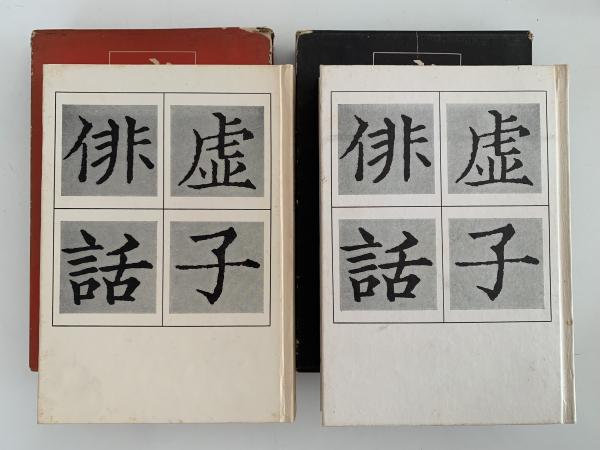 虚子
俳話
虚子
俳話